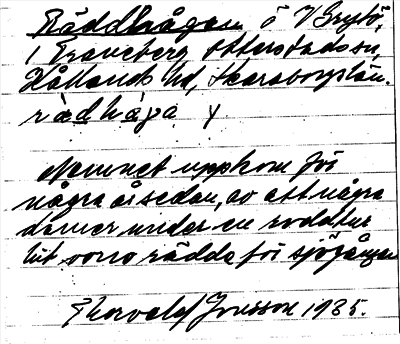 Räddhågan ö V Brytö,
i Traneberg Otterstads sn,
Kållands hd, Skaraborgs län.
rädhåga y
Namnet uppkom för
några år sedan, av att några
damer under en roddtur
hit voro rädda för sjögången
Thorvald Jonsson 1935.